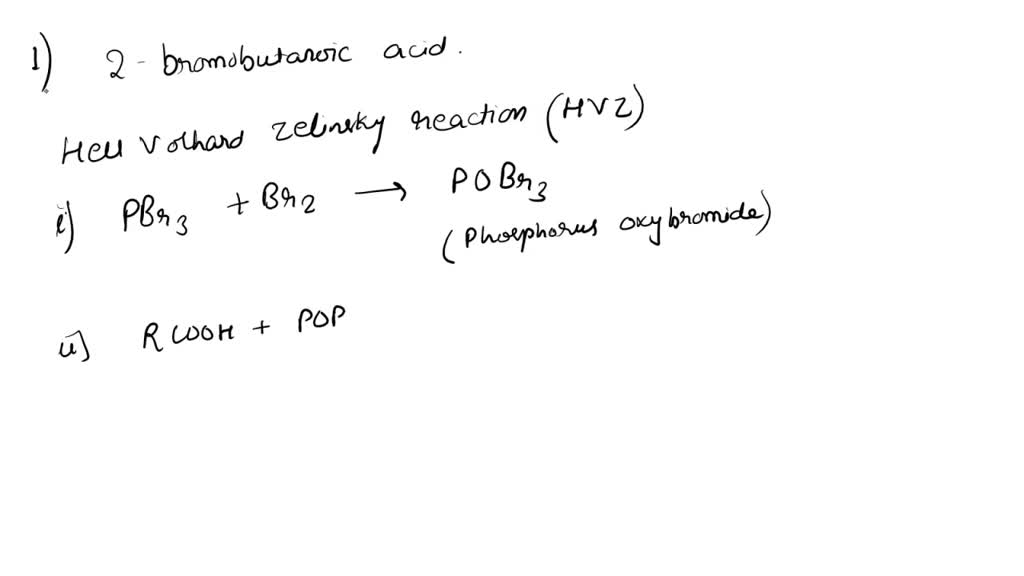 1) 2 - bromobutanoic acid.
Hell Volhard Zelinsky reaction (HVZ)
i) PBr3 + Br2 → POBr3
(Phosphorus oxybromide)
ii) RCOOH + POP